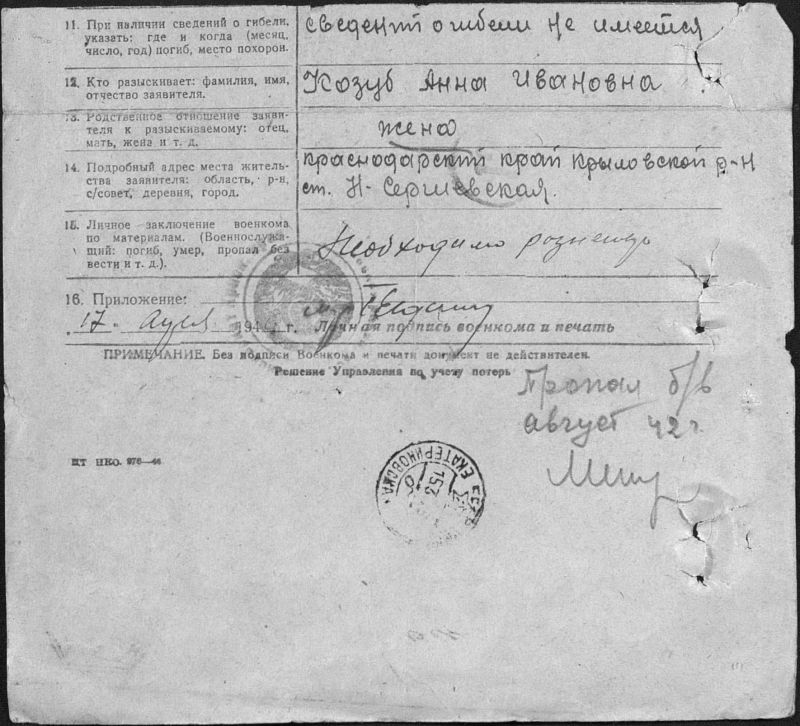 11. При наличии сведений о гибели, указать: где и когда (месяц, число, год) погиб, место похорон.
сведений о гибели не имеется
12. Кто разыскивает: фамилия, имя, отчество заявителя.
Козуб Анна Ивановна
13. Родственное отношение заявителя к разыскиваемому: отец, мать, жена и т. д.
жена
14. Подробный адрес места жительства заявителя: область, р-н, с/совет, деревня, город.
Краснодарский край Крыловской р-н
ст. Н-Сергиевская.
15. Личное заключение военкома по материалам. (Военнослужащий: погиб, умер, пропал без вести и т. д.).
Необходимо
16. Приложение:
17 194 г. Личная подпись военкома и печать
ПРИМЕЧАНИЕ. Без подписи Военкома и печати документ не действителен.
Решение Управления по учету потерь
Пропал б/в
август 42 г.
ЦТ НКО. 976—46
ЕКАТЕРИНОВСКАЯ